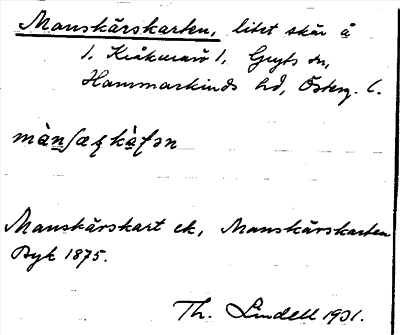 Manskärskarten, litet skär å
l. Kråkmarö l. Gryts sn,
Hammarkinds hd, Österg. l.
Manskärskart ek, Manskärskarten
Dyk 1875.
Th. Lindell 1931.